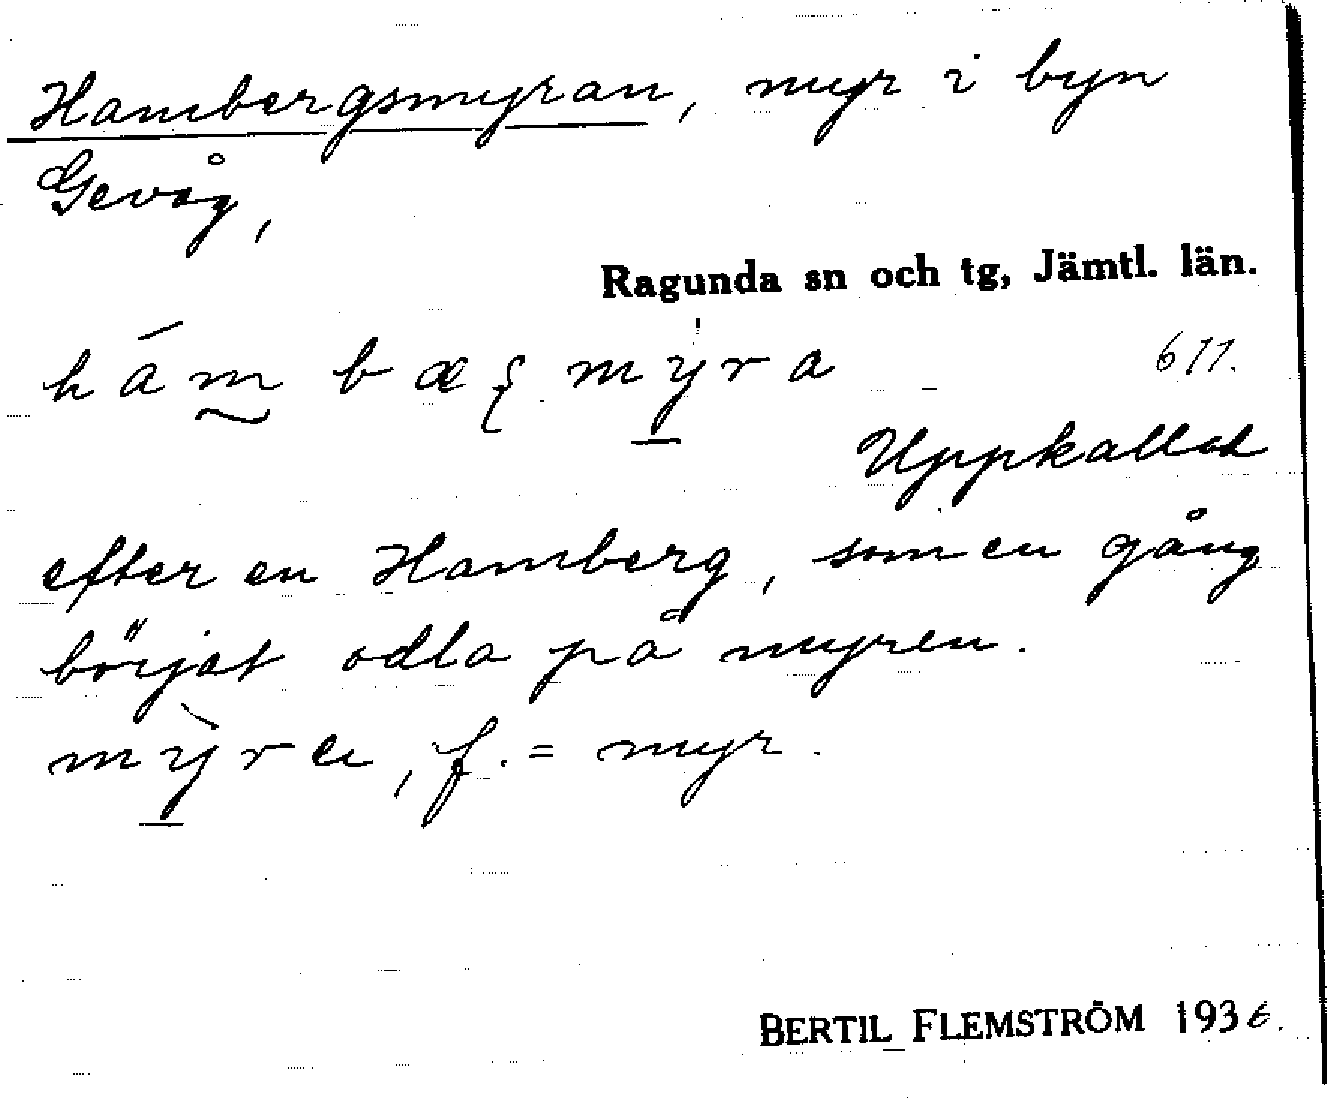 Hambergsmyran, myr i byn
Gevåg,
Ragunda sn och tg, Jämtl. län.
hám bæʃ mỳra 611.
Uppkallad
efter en Hamberg, som en gång
börjat odla på myren.
mỳra, f. = myr.
BERTIL FLEMSTRÖM 1936.